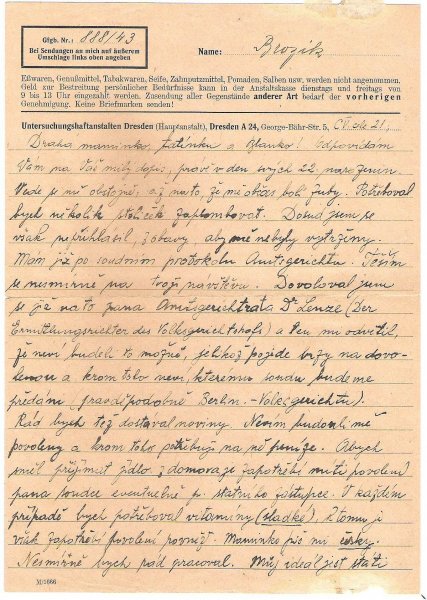 Gfgb. Nr.: 888/43
Bei Sendungen an mich auf äußerem
Umschlage links oben angeben
Name: Brozik
Eßwaren, Genußmittel, Tabakwaren, Seife, Zahnputzmittel, Pomaden, Salben usw. werden nicht angenommen.
Geld zur Bestreitung persönlicher Bedürfnisse kann in der Anstaltskasse dienstags und freitags von
9 bis 13 Uhr eingezahlt werden. Zusendung aller Gegenstände anderer Art bedarf der vorherigen
Genehmigung. Keine Briefmarken senden!
Untersuchungshaftanstalten Dresden (Hauptanstalt), Dresden A 24, George-Bähr-Str. 5, 21.
Drahá maminko, tatínku a Blanko! Odpovídám
Vám na Váš milý dopis, právě v den svých 22 narozenin.
Vede se mi obstojně, až na to, že mě občas bolí zuby. Potřeboval
bych několik zaplombovat. Dosud jsem se
však nepřihlásil, z obavy aby mě nebyly vytrženy.
Mám již po soudním protokolu Amtsgerichtu. Těším
se nesmírně na Vaši návštěvu. Dovoloval jsem
se již na to pana Amtsgerichtrata Dr Lenze (Der
Ermittlungsrichter des Volksgerichtshofs) a ten mi odvětil,
že neví budeli to možné, jelikož pojede brzy na dovo-
lenou a krom toho neví, kterému soudu budeme
předáni (pravděpodobně Berlin - Volksgerichtu).
Rád bych též dostával noviny. Nevím budouli mě
povoleny a krom toho potřebuji na ně peníze. Abych
směl přijímat jídlo z domova je zapotřebí míti povolení
pana soudce eventuelně p. státního zástupce. V každém
případě bych potřeboval vitamíny (sladké), k tomu je
však zapotřebí povolení rovněž. Maminko piš mi česky.
Nesmírně bych rád pracoval. Můj ideál jest státi
M/1666